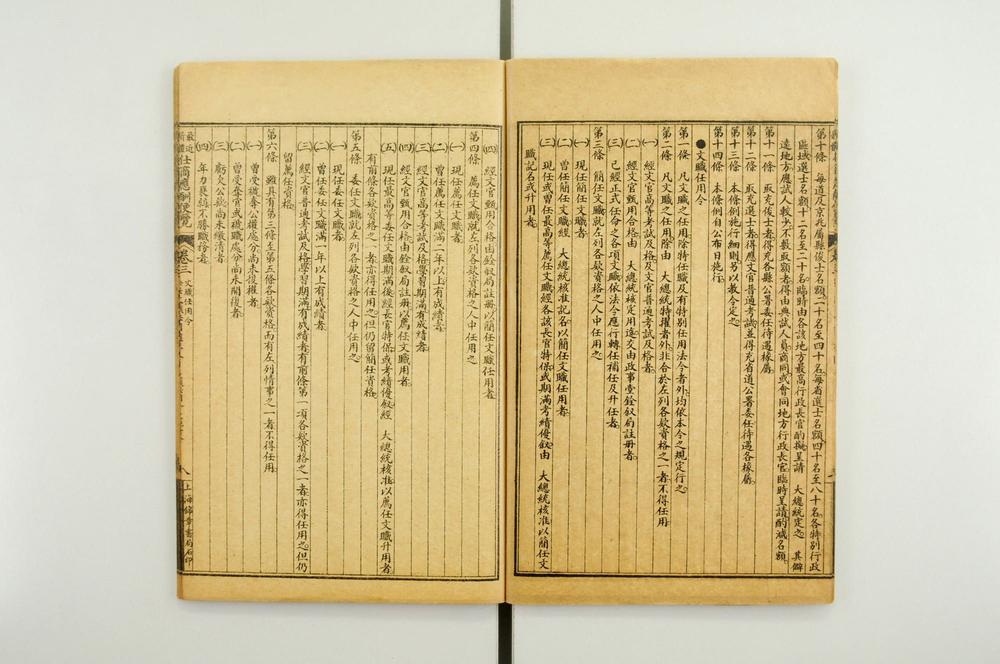 第十條　每道及京兆屬縣俊士名額二十名至四十名每省選士名額四十名至八十名各特別行政
區域選士名額十二名至二十名臨時由各該地方最高行政長官酌擬呈請　大總統定之　其僻
遠地方應試人數少不敷取額者得由典試人員商同或會同地方行政長官臨時呈請酌減名額
第十一條　取充俊士者得充各縣公署委任待遇掾屬
第十二條　取充選士者得應文官普通考試並得充省道公署委任待遇各掾屬
第十三條　本條例施行細則另以教令定之
第十四條　本條例自公布日施行
●文職任用令
第一條　凡文職之任用除特任職及有特別任用法令者外均依本令之規定行之
第二條　凡文職之任用除由　大總統特擢者外非合於左列各款資格之一者不得任用
(一)　經文官高等考試及格及文官普通考試及格者
(二)　經文官甄用合格由　大總統核定用途交由政事堂銓叙局註冊者
(三)　已經正式任命之各項文職依法令應行轉任補任及升任者
第三條　簡任文職就左列各款資格之人中任用之
(一)　現任簡任文職者
(二)　曾任簡任文職經　大總統核准記名以簡任文職任用者
(三)　現任或曾任最高等薦任文職經各該長官特保或期滿考績優叙由　大總統核准以簡任文
職記名或升用者
(四)　經文官甄用合格由銓叙局註冊以簡任文職任用者
第四條　薦任文職就左列各款資格之人中任用之
(一)　現任薦任文職者
(二)　曾任薦任文職滿二年以上有成績者
(三)　經文官高等考試及格學習期滿有成績者
(四)　經文官甄用合格由銓叙局註冊以薦任文職用者
(五)　現任最高等委任文職期滿後經長官特保或考績優叙經　大總統核准以薦任文職升用者
有前條各款資格之一者亦得任用之但仍留簡任資格
第五條　委任文職就左列各款資格之人中任用之
(一)　現任委任文職者
(二)　曾任委任文職滿一年以上有成績者
(三)　經文官普通考試及格學習期滿有成績者有前條第一項各款資格之一者亦得任用之但仍
留薦任資格
第六條　雖具有第三條至第五條各款資格而有左列情事之一者不得任用
(一)　曾受褫奪公權處分尚未復權者
(二)　曾受奪官或褫職處分尚未開復者
(三)　虧欠公款尚未繳清者
(四)　年力衰弱不勝職務者
最近新體仕商應酬便覽
卷三
文職任用令
八
上海錦章書局石印